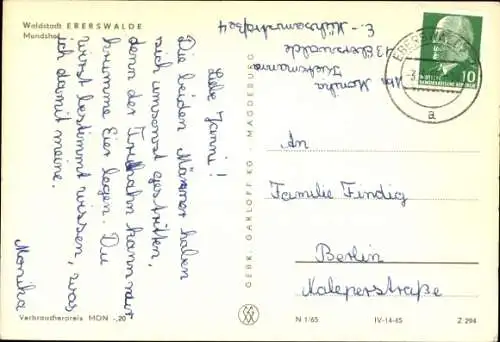 Waldstadt EBERSWALDE
Mundshof
Liebe Janni!
Die beiden Männer haben
sich umsonst gestritten,
denn der Truthahn kann nur
krumme Eier legen. Du
wirst bestimmt wissen, was
ich damit meine.
Monika
Verbraucherpreis MDN -,20
GEBR. GARLOFF KG. MAGDEBURG
Abs. Monika
43 Eberswalde
EBERSWALDE
a
10
DEUTSCHE
DEMOKRATISCHE REPUBLIK
An
Familie Findig
Berlin
N 1/65
IV-14-45
Z 294